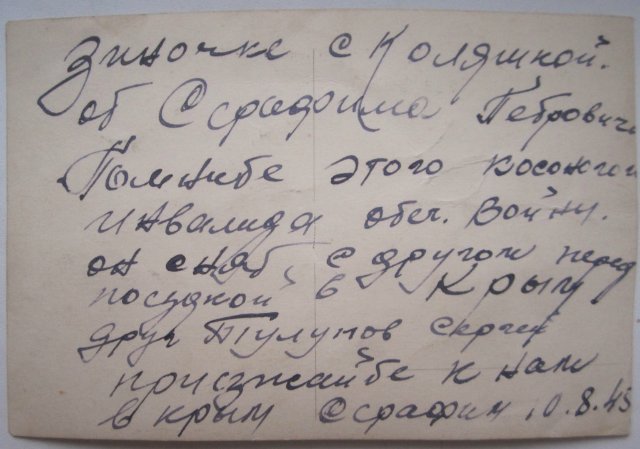 Зиночке с Коляшкой.
от Серафима Петровича
Помните этого косоного
инвалида отеч. войны.
он снят с другом перед
поездкой в Крым
друг Тулупов Сергей
приезжайте к нам
в крым Серафим 10.8.45